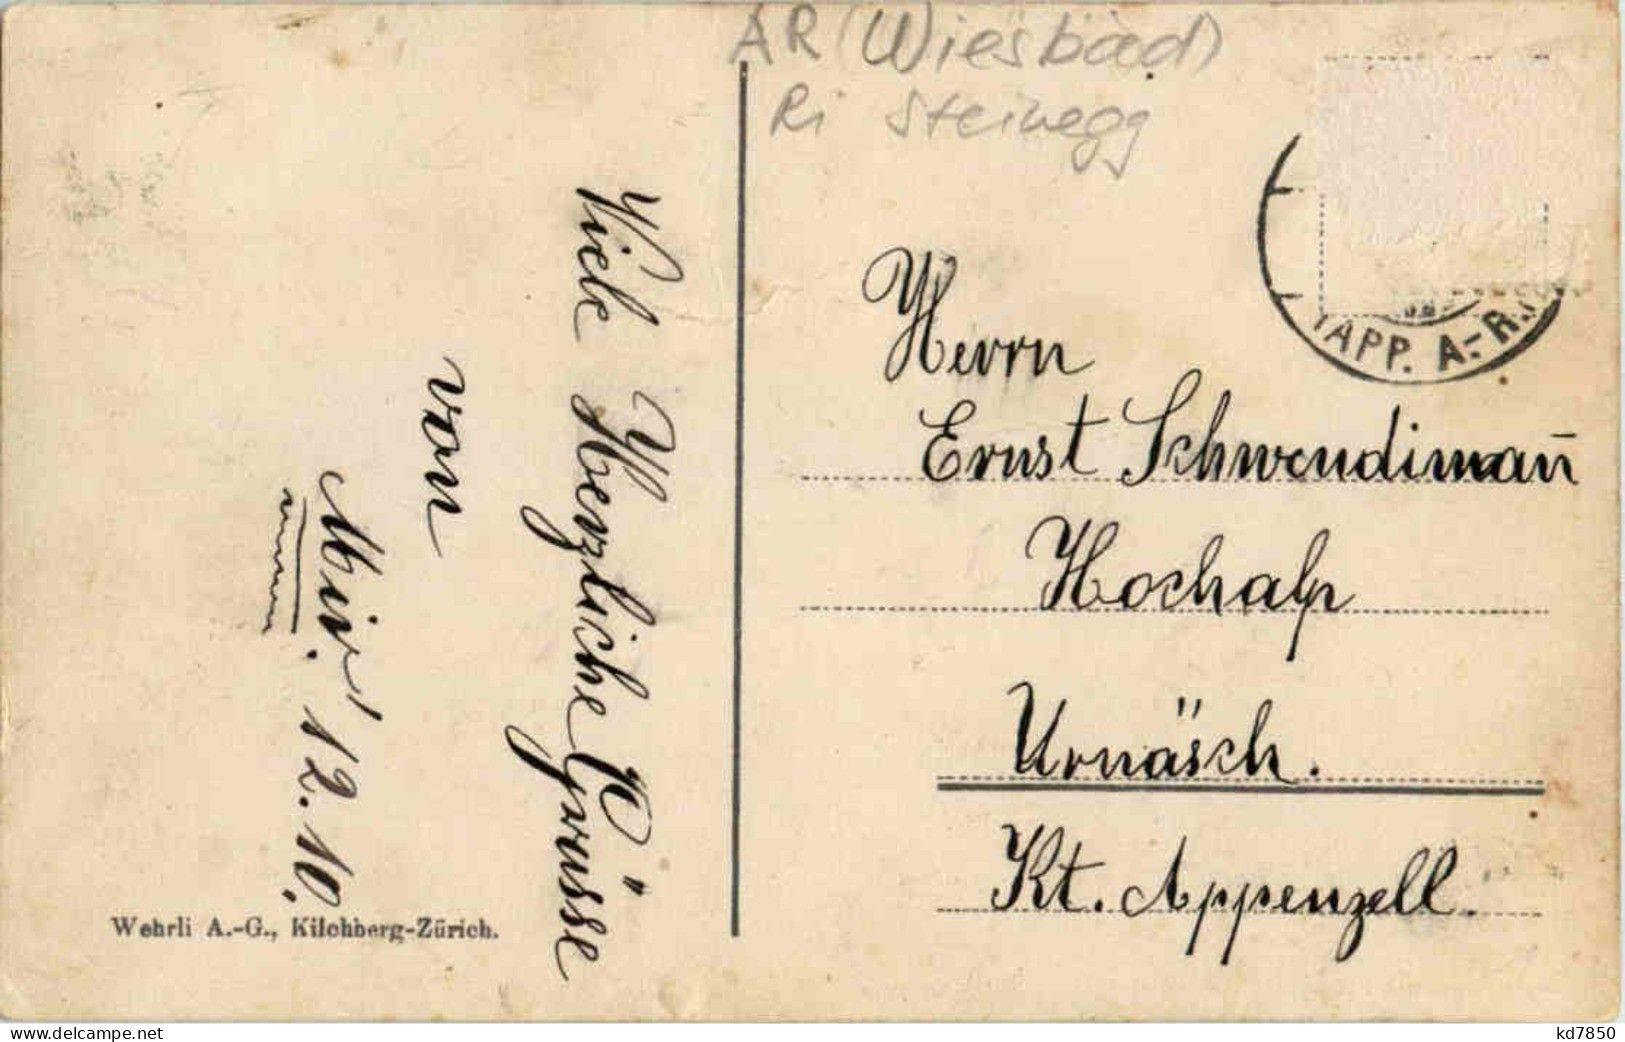 AR (Wiesbad)
Ri Steinegg
(APP. A.-R.)
Viele Herzliche Grüsse
von
Mir. 12.10.
Herrn
Ernst Schwendiman̄
Hochalp
Urnäsch.
Kt. Appenzell.
Wehrli A.-G., Kilchberg-Zürich.
www.delcampe.net
kd7850